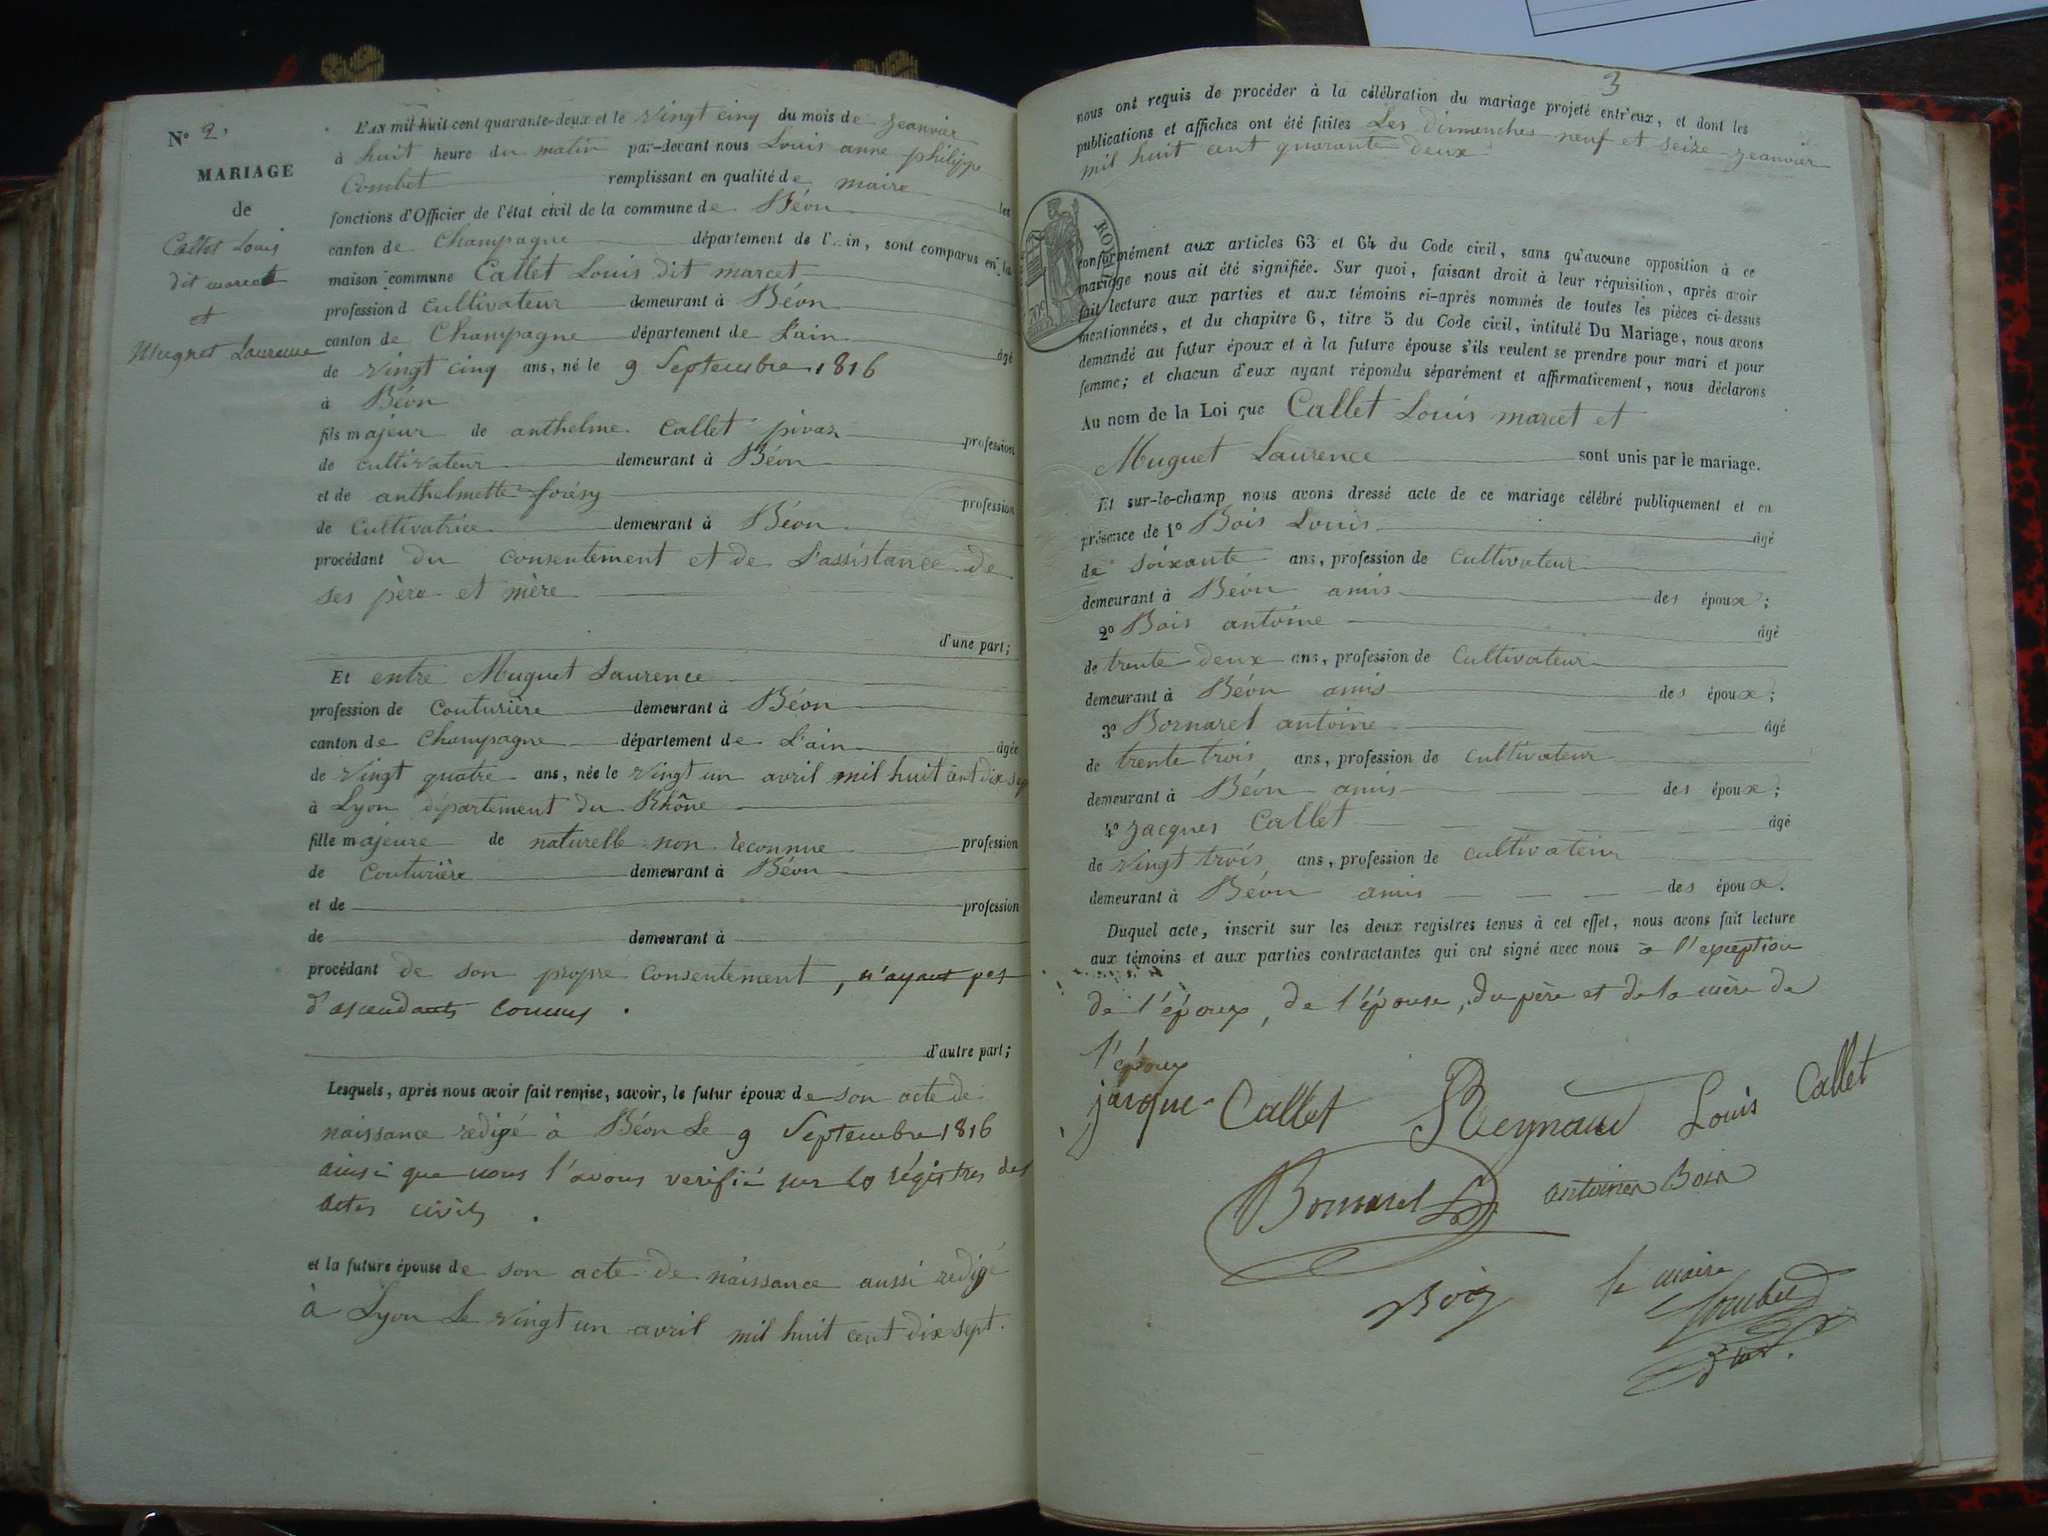 N° 2.
MARIAGE
de
Callet Louis
dit marcet
et
Muguet Laurence
L'AN mil huit cent quarante-deux et le vingt cinq du mois de jeanvier
à huit heure du matin par-devant nous Louis anne philippe
Combet remplissant en qualité de maire les
fonctions d'Officier de l'état civil de la commune de Béon
canton de Champagne département de l'Ain, sont comparus en la
maison commune Callet Louis dit marcet
profession d cultivateur demeurant à Béon
canton de Champagne département de L'ain âgé
de vingt cinq ans, né le 9 Septembre 1816
à Béon
fils majeur de anthelme Callet pivaz profession
de cultivateur demeurant à Béon
et de anthelmette forésy profession
de Cultivatrice demeurant à Béon
procédant du consentement et de L'assistance de
ses père et mère
d'une part;
Et entre Muguet Laurence
profession de Couturière demeurant à Béon
canton de Champagne département de L'ain âgée
de vingt quatre ans, née le vingt un avril mil huit cent dix sep
à Lyon département du Rhône
fille majeure de naturelle non reconnue profession
de Couturière demeurant à Béon
et de profession
de demeurant à
procédant de son propre consentement, n'ayant pas
d'ascendants connus.
d'autre part;
Lesquels, après nous avoir fait remise, savoir, le futur époux de son acte de
naissance redigé à Béon Le 9 Septembre 1816
ainsi que nous l'avons verifié sur les régistres des
actes civils.
et la future épouse de son acte de naissance aussi redigé
à Lyon Le vingt un avril mil huit cent dix sept.
3
nous ont requis de procéder à la célébration du mariage projeté entr'eux, et dont les
publications et affiches ont été faites Les dimenches neuf et seize jeanvier
mil huit cent quarante deux
ROYAL
conformément aux articles 63 et 64 du Code civil, sans qu'aucune opposition à ce
mariage nous ait été signifiée. Sur quoi, faisant droit à leur réquisition, après avoir
fait lecture aux parties et aux témoins ci-après nommés de toutes les pièces ci-dessus
mentionnées, et du chapitre 6, titre 5 du Code civil, intitulé Du Mariage, nous avons
demandé au futur époux et à la future épouse s'ils veulent se prendre pour mari et pour
femme; et chacun d'eux ayant répondu séparément et affirmativement, nous déclarons
Au nom de la Loi que Callet Louis marcet et
Muguet Laurence sont unis par le mariage.
Et sur-le-champ nous avons dressé acte de ce mariage célébré publiquement et en
présence de 1° Bois Louis âgé
de soixante ans, profession de Cultivateur
demeurant à Béon amis des époux;
2° Bois antoine âgé
de trente deux ans, profession de Cultivateur
demeurant à Béon amis des époux;
3° Bornarel antoine âgé
de trente trois ans, profession de cultivateur
demeurant à Béon amis des époux;
4° Jacques Callet âgé
de vingt trois ans, profession de cultivateur
demeurant à Béon amis des époux.
Duquel acte, inscrit sur les deux registres tenus à cet effet, nous avons fait lecture
aux témoins et aux parties contractantes qui ont signé avec nous à l'exception
de l'époux, de l'épouse, du père et de la mère de
l'époux
jacque Callet Reynaud Louis Callet
Bornarel antoine Bois
Bois le maire
Combet